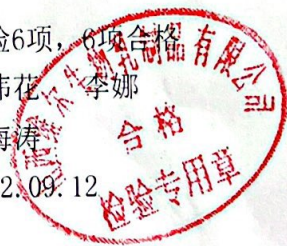 检6项，6项合格
伟花 李娜
海涛
2.09.12
维尔生物乳制品有限公司
合格
检验专用章